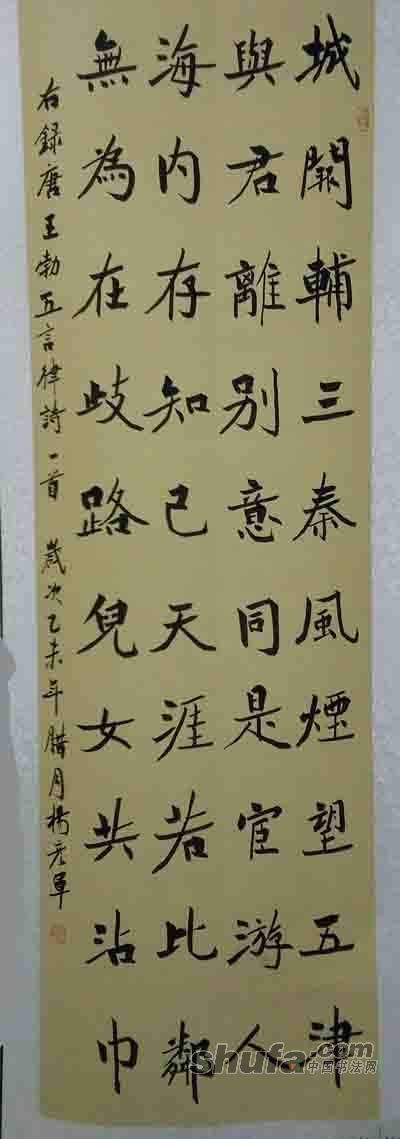 城闕輔三秦風煙望五津
與君離別意同是宦游人
海內存知己天涯若比鄰
無為在歧路兒女共沾巾
右録唐王勃五言律詩一首 歲次乙未年腊月
shufa.com
中国书法网